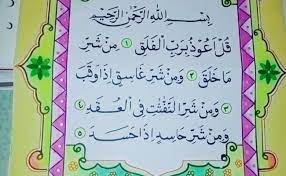 بِسْمِ اللهِ الرَّحْمٰنِ الرَّحِيْمِ
قُلْ اَعُوْذُ بِرَبِّ الْفَلَقِ ۝١ مِنْ شَرِّ
مَا خَلَقَ ۝٢ وَمِنْ شَرِّ غَاسِقٍ اِذَا وَقَبَ
۝٣ وَمِنْ شَرِّ النَّفّٰثٰتِ فِى الْعُقَدِ ۝٤
وَمِنْ شَرِّ حَاسِدٍ اِذَا حَسَدَ ۝٥